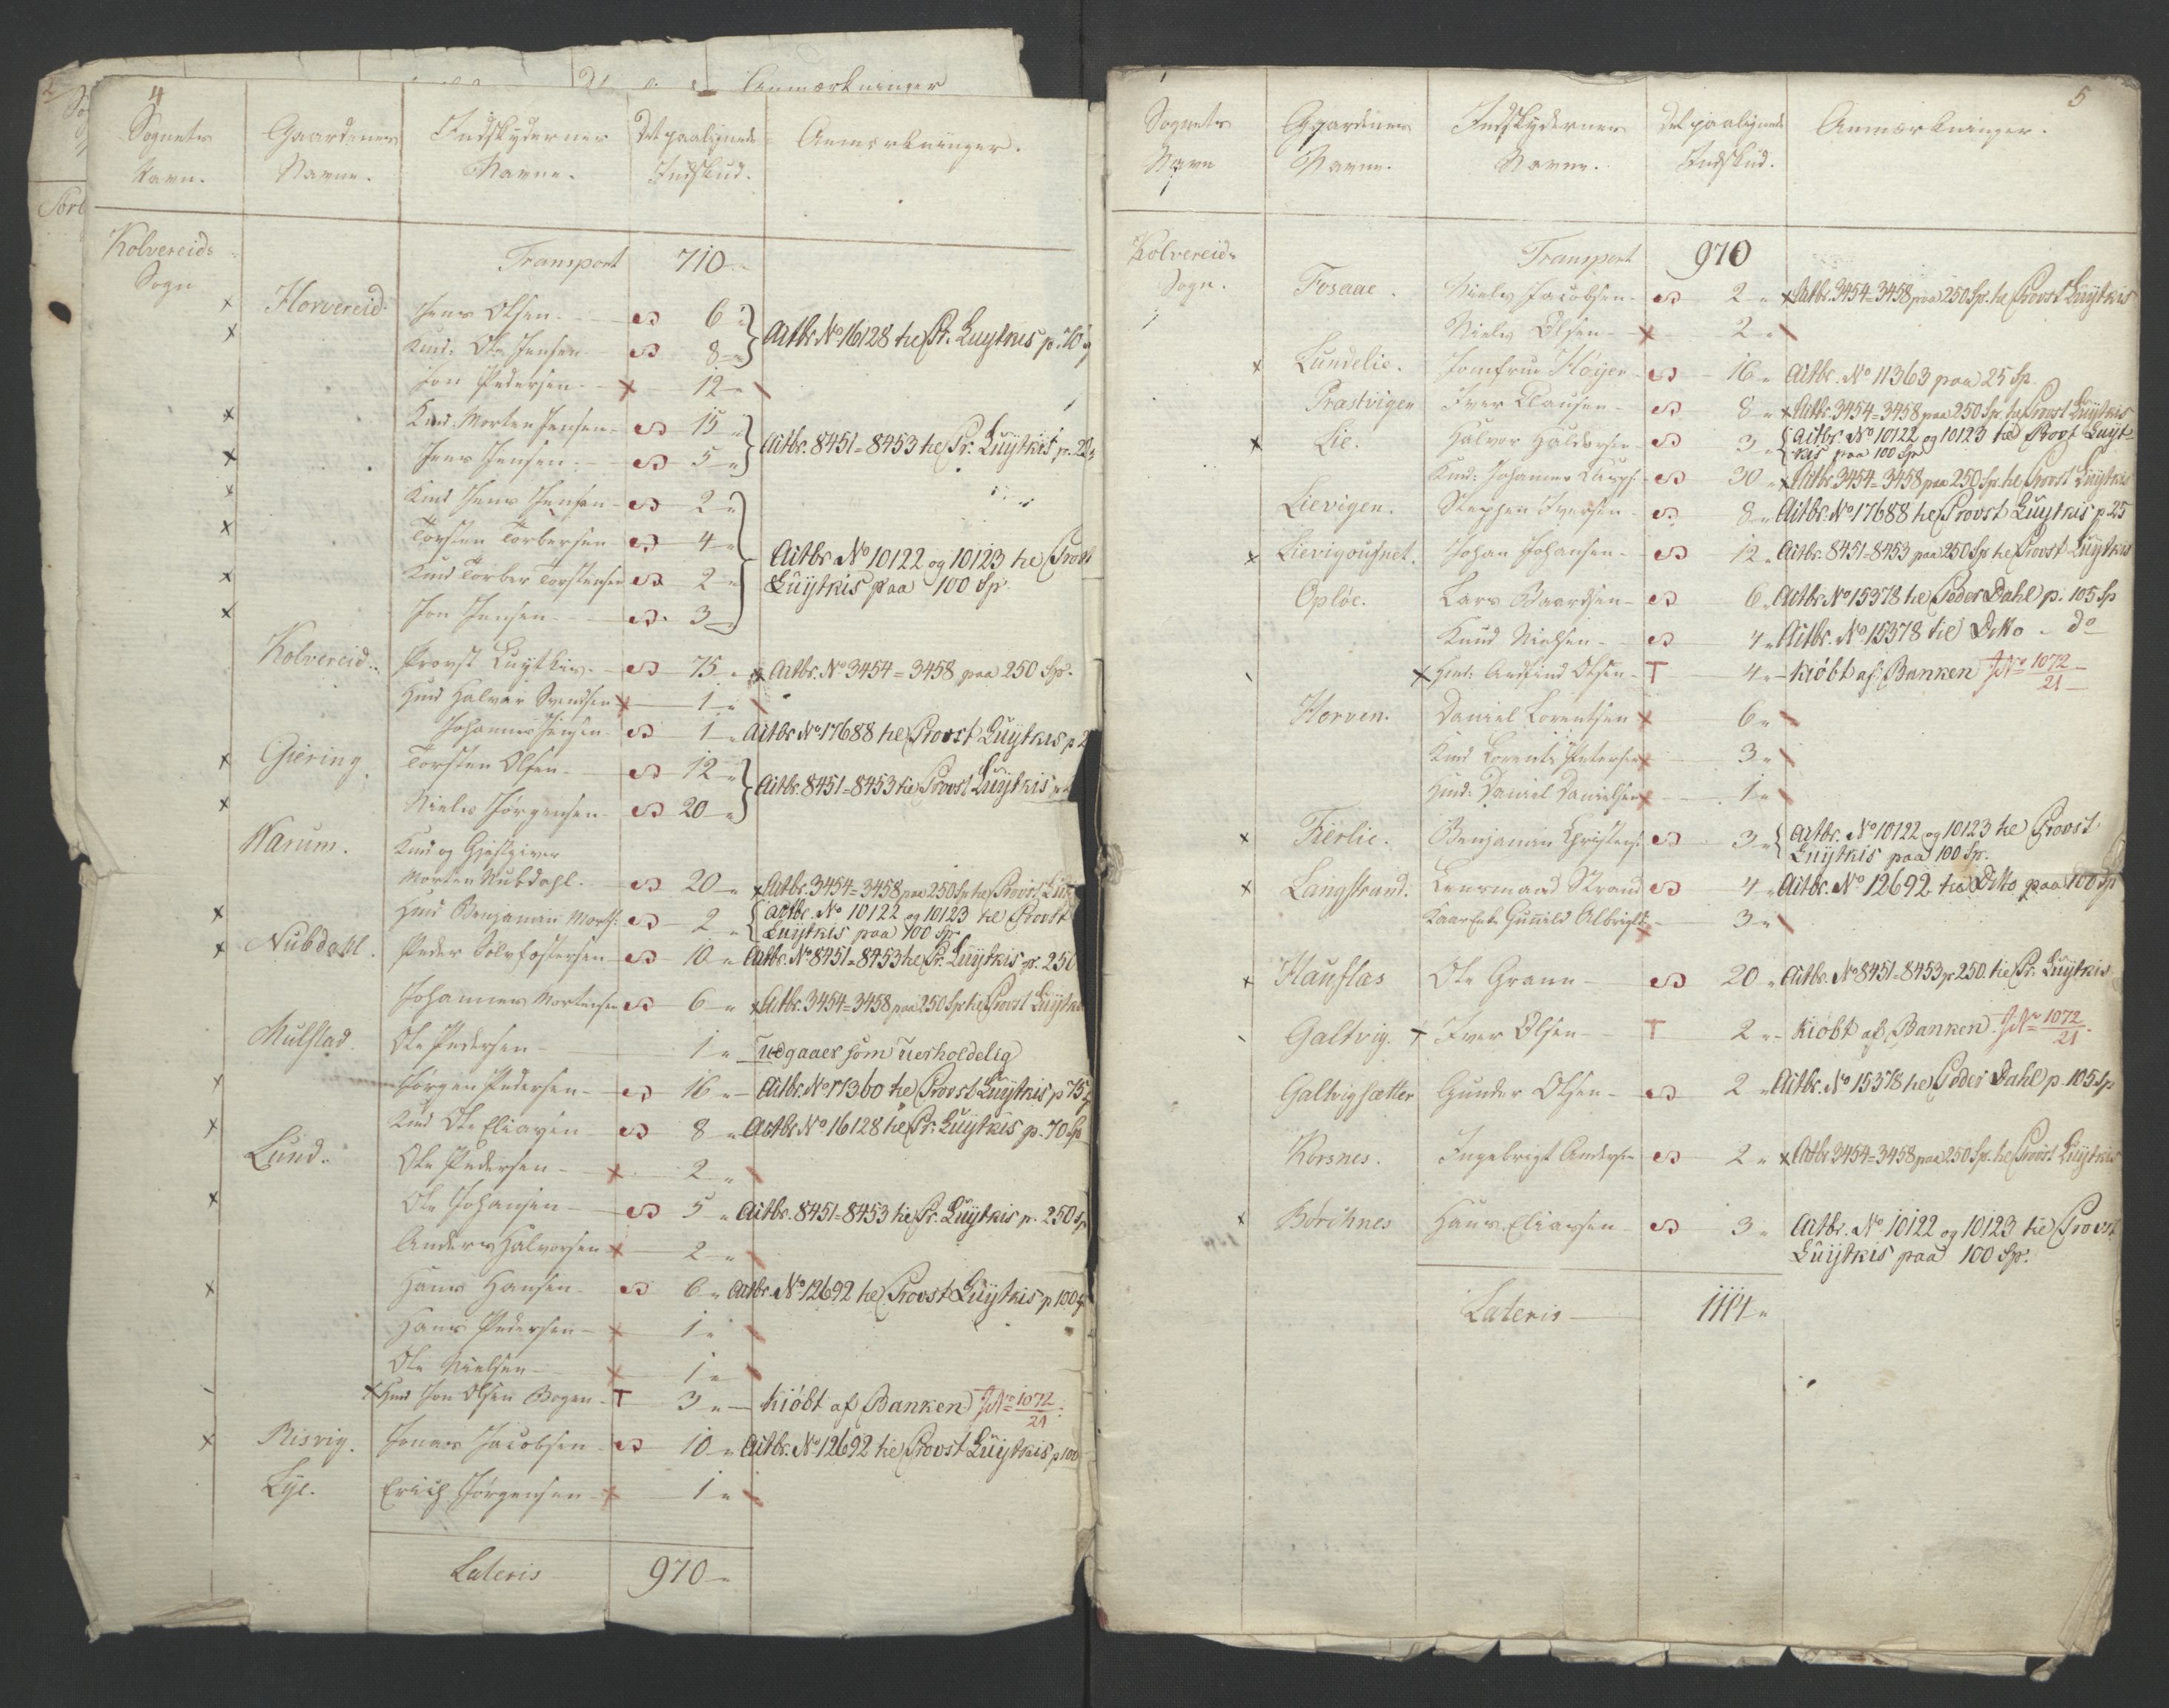 4
Sognets Navn. Gaardenes Navne. Indskydernes Navne. Det paalignede Indskud. Anmærkninger.
Kolvereids Sogn
Transport 710
x Horvereid. Jens Olsen 6
x Kmd: Ole Jensen 8 } Actbr. No 16128 til Pr. Luytkis p. 70
Jon Pedersen x 12
x Kmd. Morten Jensen 15
x Jens Jensen 5 } Actbr. 8451=8453 til Pr. Luytkis p.
x Kmd Jens Jensen 2
x Torsten Torbersen 4
x Kmd Torber Torstensen 2
x Jon Jensen 3 } Actbr. No 10122 og 10123 til Provst
Luytkis paa 100 Sp.
Kolvereid. Provst Luytkis 75 x Actbr. No 3454=3458 paa 250 Sp.
Hmd Halvor Svendsen x 1
Johannes Jensen 1 Actbr No 17688 til Provst Luytkis p
x Giering. Torsten Olsen 12
x Niels Jørgensen 20 } Actbr. 8451=8453 til Provst Luytkis
Warum. Kmd og Gjæstgiver
Morten Nubdahl 20 x Actbr. 3454=3458 paa 250 Sp. til Provst
x Hmd Benjamin Morts: 2 { Actbr. No 10122 og 10123 til Provst
Luytkis paa 100 Sp.
x Nubdahl. Peder Sølvfæstersen 10 Actbr. No 8451=8453 til Pr. Luytkis p. 250
Johannes Mortensen 6 x Actbr. 3454=3458 paa 250 Sp til Provst Luytkis
Mulstad. Ole Pedersen 1 udgaaer som uerholdelig
x Jørgen Pedersen 16 Actbr. No 17360 til Provst Luytkis p 75
x Kmd Ole Eliasen 8 Actbr No 16128 til Pr. Luytkis p. 70 Sp
Lund. Ole Pedersen x 2
x Ole Johansen 5 Actbr. 8451=8453 til Pr. Luytkis p. 250 Sp
Anders Halvorsen x 2
x Hans Hansen 6 Actbr. No 12692 til Provst Luytkis p 100
Hans Pedersen x 1
Ole Nielsen x 1
x Hmd Jon Olsen Bogen T 3 Kiøbt af Banken JNo 1072/21
x Risvig. Jonas Jacobsen 10 Actbr. No 12692 til Provst Luytkis p 100
Lye. Erich Jørgensen x 1
Lateris 970
5
Sognets Navn Gaardenes Navne. Indskydernes Navne. Det paalignede Indskud. Anmærkninger.
Kolvereids Sogn.
Transport 970
Fosaae. Niels Jacobsen 2 x Actbr. 3454=3458 paa 250 Sp. til Provst Luytkis
Niels Olsen x 2
x Lundelie. Jomfrue Høyer 16 Actbr. No 11363 paa 25 Sp
Præstvigen Iver Clausen 8 x Actbr. 3454=3458 paa 250 Sp. til Provst Luytkis
x Lie. Halvor Haldorsen 3 { Actbr. No 10122 og 10123 til Provst Luyt-
kis paa 100 Sp
Kmd: Johannes Lars: 30 x Actbr. 3454=3458 paa 250 Sp. til Provst Luytkis
Lievigen. Stephen Iversen 8 Actbr. No 17688 til Provst Luytkis p 25
x Lievigousnet. Johan Johansen 12 Actbr. 8451=8453 paa 250 Sp til Provst Luytkis
Opløe. Lars Baardsen 6 Actbr. No 15378 til Peder Dahl p. 105 Sp
Knud Nielsen 4 Actbr. No 15378 til Ditto do
x Hmd: Andfind Olsen T 4 Kiøbt af Banken JNo 1072/21
Horven. Daniel Lorentsen x 6
Kmd Lorents Petersen x 3
Hmd: Daniel Danielsen x 1
x Fierlie. Benjamin Christens: 3 { Actbr. No 10122 og 10123 til Provst
Luytkis paa 100 Sp.
x Langstrand. Lensmand Strand 4 Actbr. No 12692 til Ditto paa 100 Sp
Kaar Enke Gunild Albrigtsd x 3
x Hauflas Ole Grann 20 Actbr. No 8451=8453 p 250. til Pr. Luytkis
Galtvig. x Iver Olsen T 2 Kiøbt af Banken. JNo 1072/21.
Galtvigsætter Gunder Olsen 2 Actbr. No 15378 til Peder Dahl p. 105 Sp
Korsnes. Ingebrigt Anders: 2 x Actbr 3454=3458 paa 250 Sp. til Provst Luytkis
x Børøhnes Hans Eliassen 3 Actbr. No 10122 og 10123 til Provst
Luytkis paa 100 Sp.
Lateris 1114